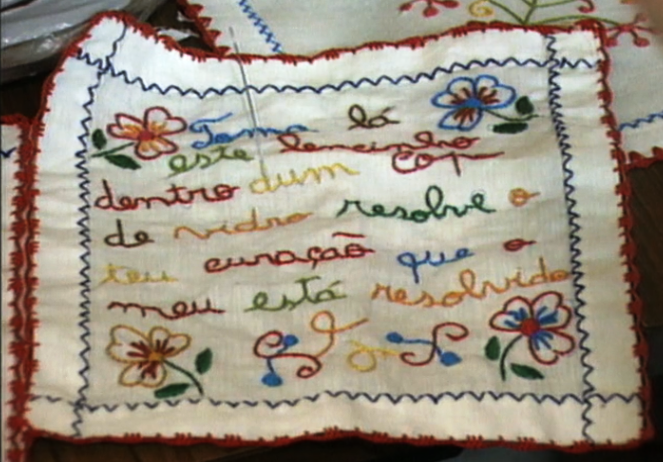 Toma lá
este lencinho
dentro dum cop
de vidro resolve o
teu curação que o
meu está resolvido